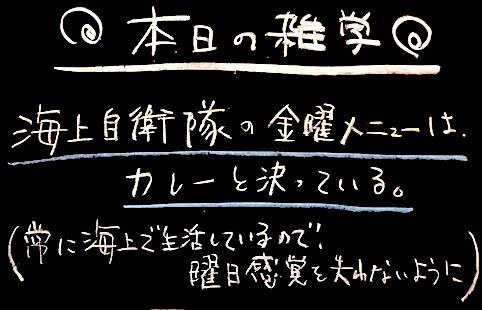 本日の雑学
海上自衛隊の金曜メニューは、
カレーと決っている。
(常に海上で生活しているので、
曜日感覚を失わないように)